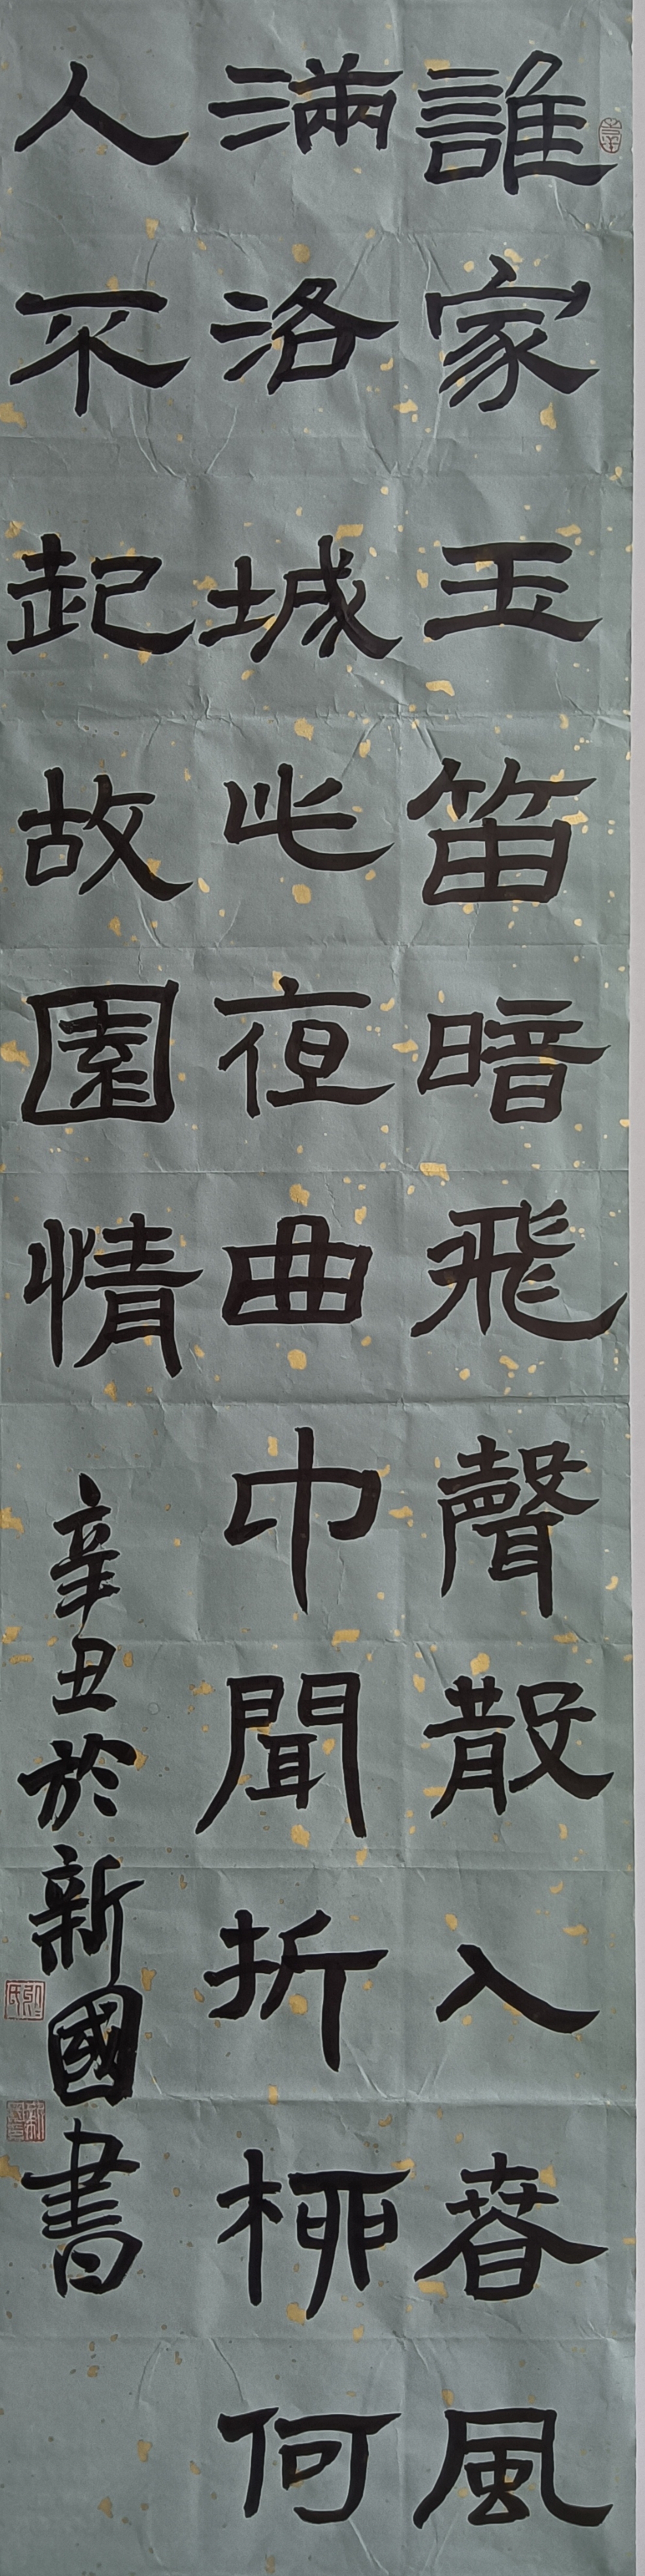 誰家玉笛暗飛聲散入春風
滿洛城此夜曲中聞折柳何
人不起故園情
辛丑於新國書